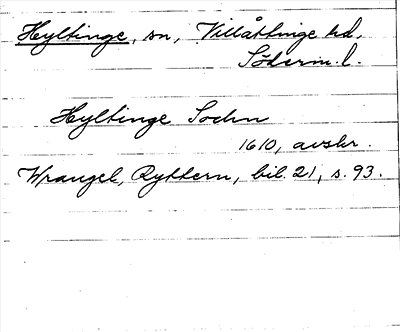 Hyltinge, sn, Villåttinge hd,
Söderm. l.
Hyltinge Sochn
1610, avskr.
Wrangel, Ryttern, bil. 21, s. 93.